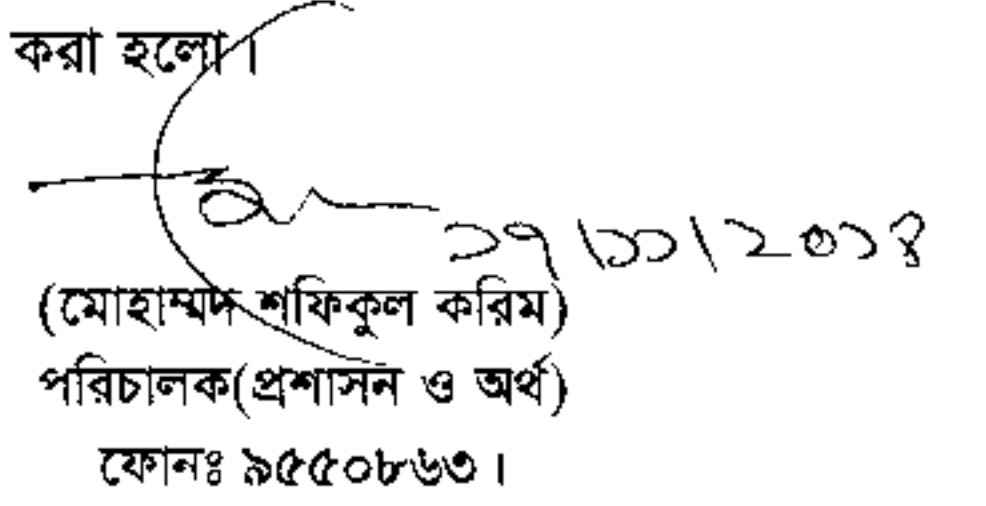 করা হলো।
১৭/১১/২০১৪
(মোহাম্মদ শফিকুল করিম)
পরিচালক(প্রশাসন ও অর্থ)
ফোনঃ ৯৫৫০৮৬৩।